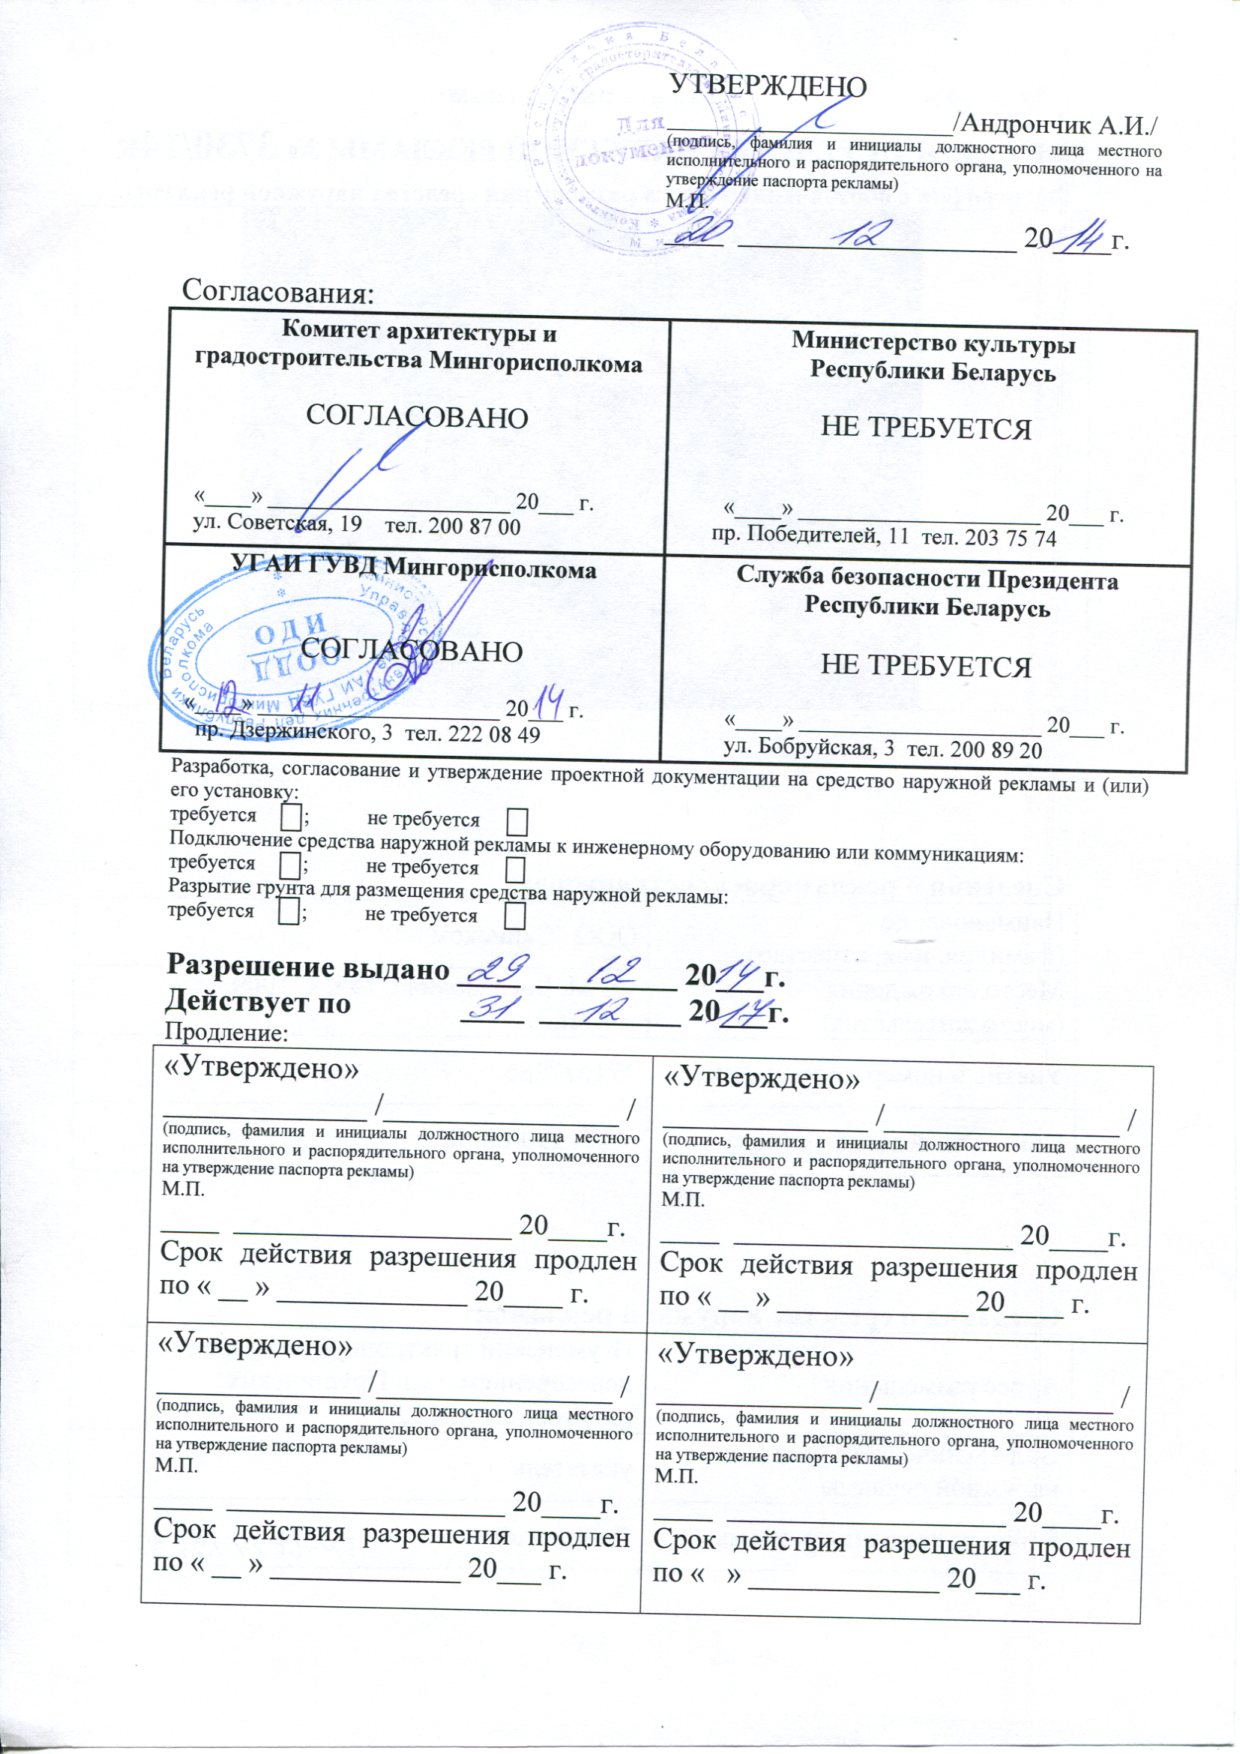 УТВЕРЖДЕНО
/Андрончик А.И./
(подпись, фамилия и инициалы должностного лица местного
исполнительного и распорядительного органа, уполномоченного на
утверждение паспорта рекламы)
М.П.
20 12 2014г.
Для
документов
Согласования:
Комитет архитектуры и
градостроительства Мингорисполкома
СОГЛАСОВАНО
«____» ____________________ 20___ г.
ул. Советская, 19 тел. 200 87 00
Министерство культуры
Республики Беларусь
НЕ ТРЕБУЕТСЯ
«____» ____________________ 20___ г.
пр. Победителей, 11 тел. 203 75 74
УГАИ ГУВД Мингорисполкома
СОГЛАСОВАНО
«12» 11 2014 г.
пр. Дзержинского, 3 тел. 222 08 49
ОДИ
ООДД
Служба безопасности Президента
Республики Беларусь
НЕ ТРЕБУЕТСЯ
«____» ____________________ 20___ г.
ул. Бобруйская, 3 тел. 200 89 20
Разработка, согласование и утверждение проектной документации на средство наружной рекламы и (или)
его установку:
требуется ; не требуется
Подключение средства наружной рекламы к инженерному оборудованию или коммуникациям:
требуется ; не требуется
Разрытие грунта для размещения средства наружной рекламы:
требуется ; не требуется
Разрешение выдано 29 12 2014г.
Действует по 31 12 2017г.
Продление:
«Утверждено»
______________ /________________ /
(подпись, фамилия и инициалы должностного лица местного
исполнительного и распорядительного органа, уполномоченного
на утверждение паспорта рекламы)
М.П.
____ ___________________ 20____г.
Срок действия разрешения продлен
по « __ » _____________ 20____ г.
«Утверждено»
______________ /________________ /
(подпись, фамилия и инициалы должностного лица местного
исполнительного и распорядительного органа, уполномоченного
на утверждение паспорта рекламы)
М.П.
____ ___________________ 20____г.
Срок действия разрешения продлен
по « __ » _____________ 20____ г.
«Утверждено»
______________ /________________ /
(подпись, фамилия и инициалы должностного лица местного
исполнительного и распорядительного органа, уполномоченного
на утверждение паспорта рекламы)
М.П.
____ ___________________ 20____г.
Срок действия разрешения продлен
по « __ » _____________ 20___ г.
«Утверждено»
______________ /________________ /
(подпись, фамилия и инициалы должностного лица местного
исполнительного и распорядительного органа, уполномоченного
на утверждение паспорта рекламы)
М.П.
____ ___________________ 20____г.
Срок действия разрешения продлен
по « » _____________ 20___ г.